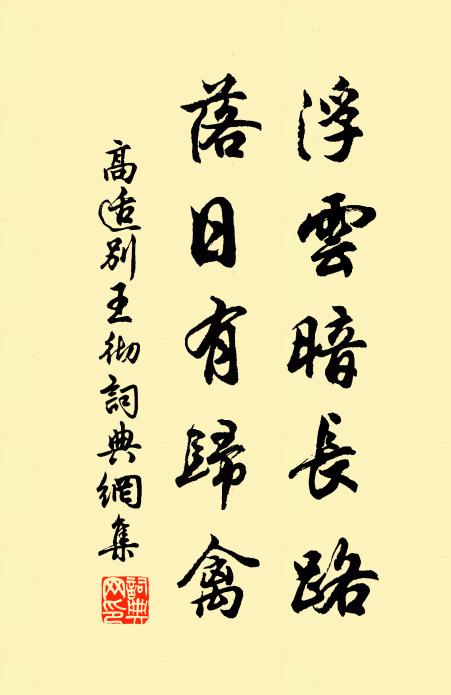 浮雲暗長路
落日有歸禽
高适別王彻詞典網集
詞典
网印